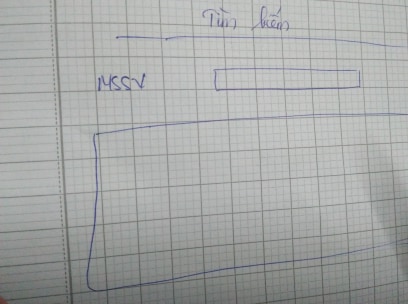 Tìm kiếm
MSSV